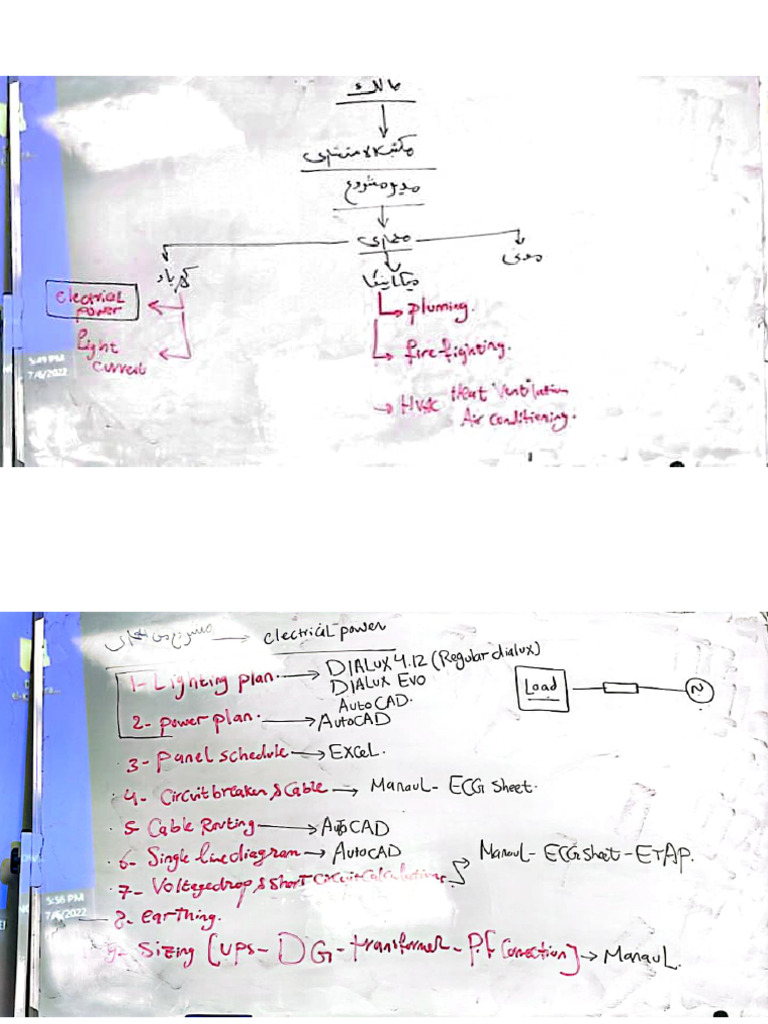 مالك
مكتب الاستشاري
مدير مشروع
معماري
كهرباء
ميكانيكا
مدني
electrical power
Light current
5:49 PM
7/6/2022
pluming.
fire fighting.
HVAC Heat Ventilation
Air conditioning.
electrical power
1- Lighting plan. DIALux 4.12 (Regular dialux)
DIALux EVO
AutoCAD.
2- power plan. AutoCAD
Load
N
3- panel schedule EXCEL.
4- Circuit breaker & Cable Manaul- ECG Sheet.
5- Cable Routing AutoCAD
6- Single line diagram AutoCAD
7- Voltage drop & Short Circuit Calculations. Manaul- ECG sheet- ETAP.
5:56 PM
7/6/2022
8- earthing.
9- Sizing [UPS- DG- transformer- P.f Correction] Manaul.